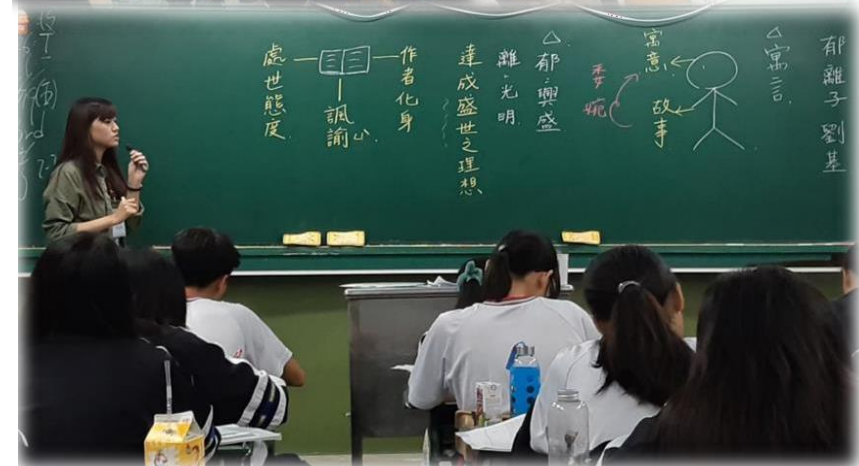 郁離子 劉基
△寓言
寓意
故事
委婉
△郁:興盛
離:光明
達成盛世之理想
作者化身
諷諭
處世態度